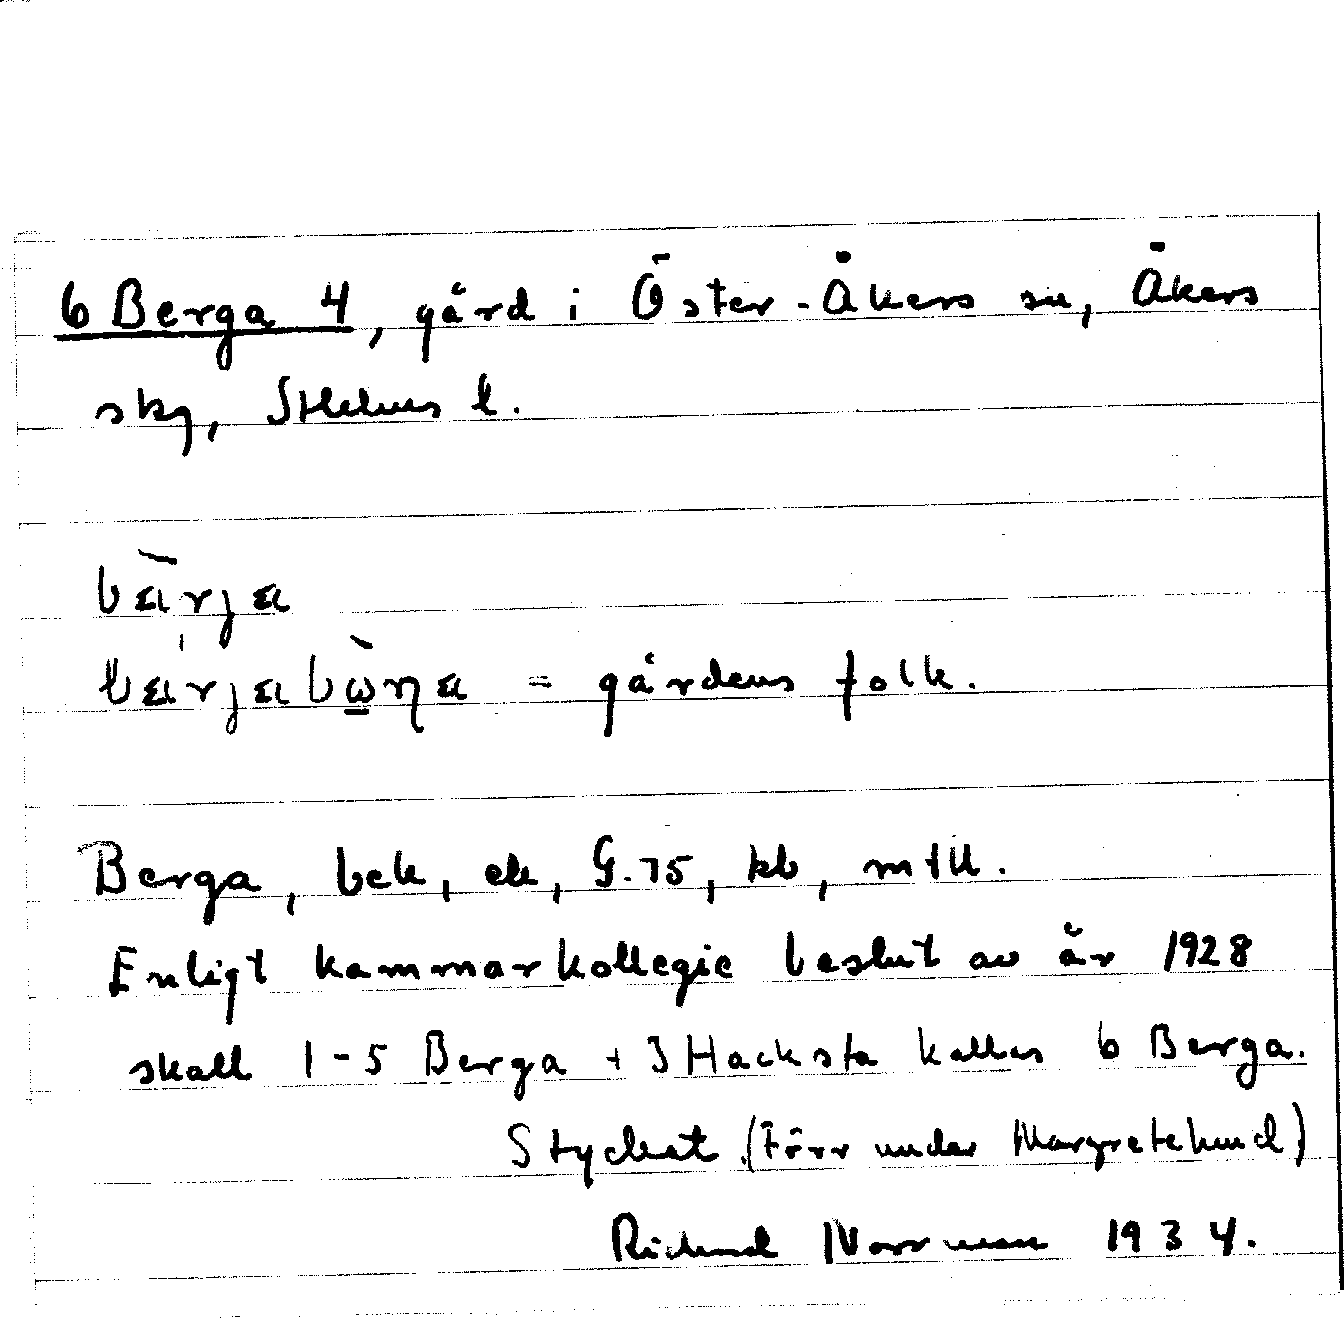 6 Berga 4, gård i Öster-Åkers sn, Åkers
skg, Sthlms l.
bæ̀rja
bæ̀rjabὼŋa = gårdens folk.
Berga, bek, ek, G.75, kb, mtll.
Enligt kammarkollegie beslut av år 1928
skall 1-5 Berga + 3 Hacksta kallas 6 Berga.
Styckat. (Förr under Margretelund)
Richard Norrman 1934.